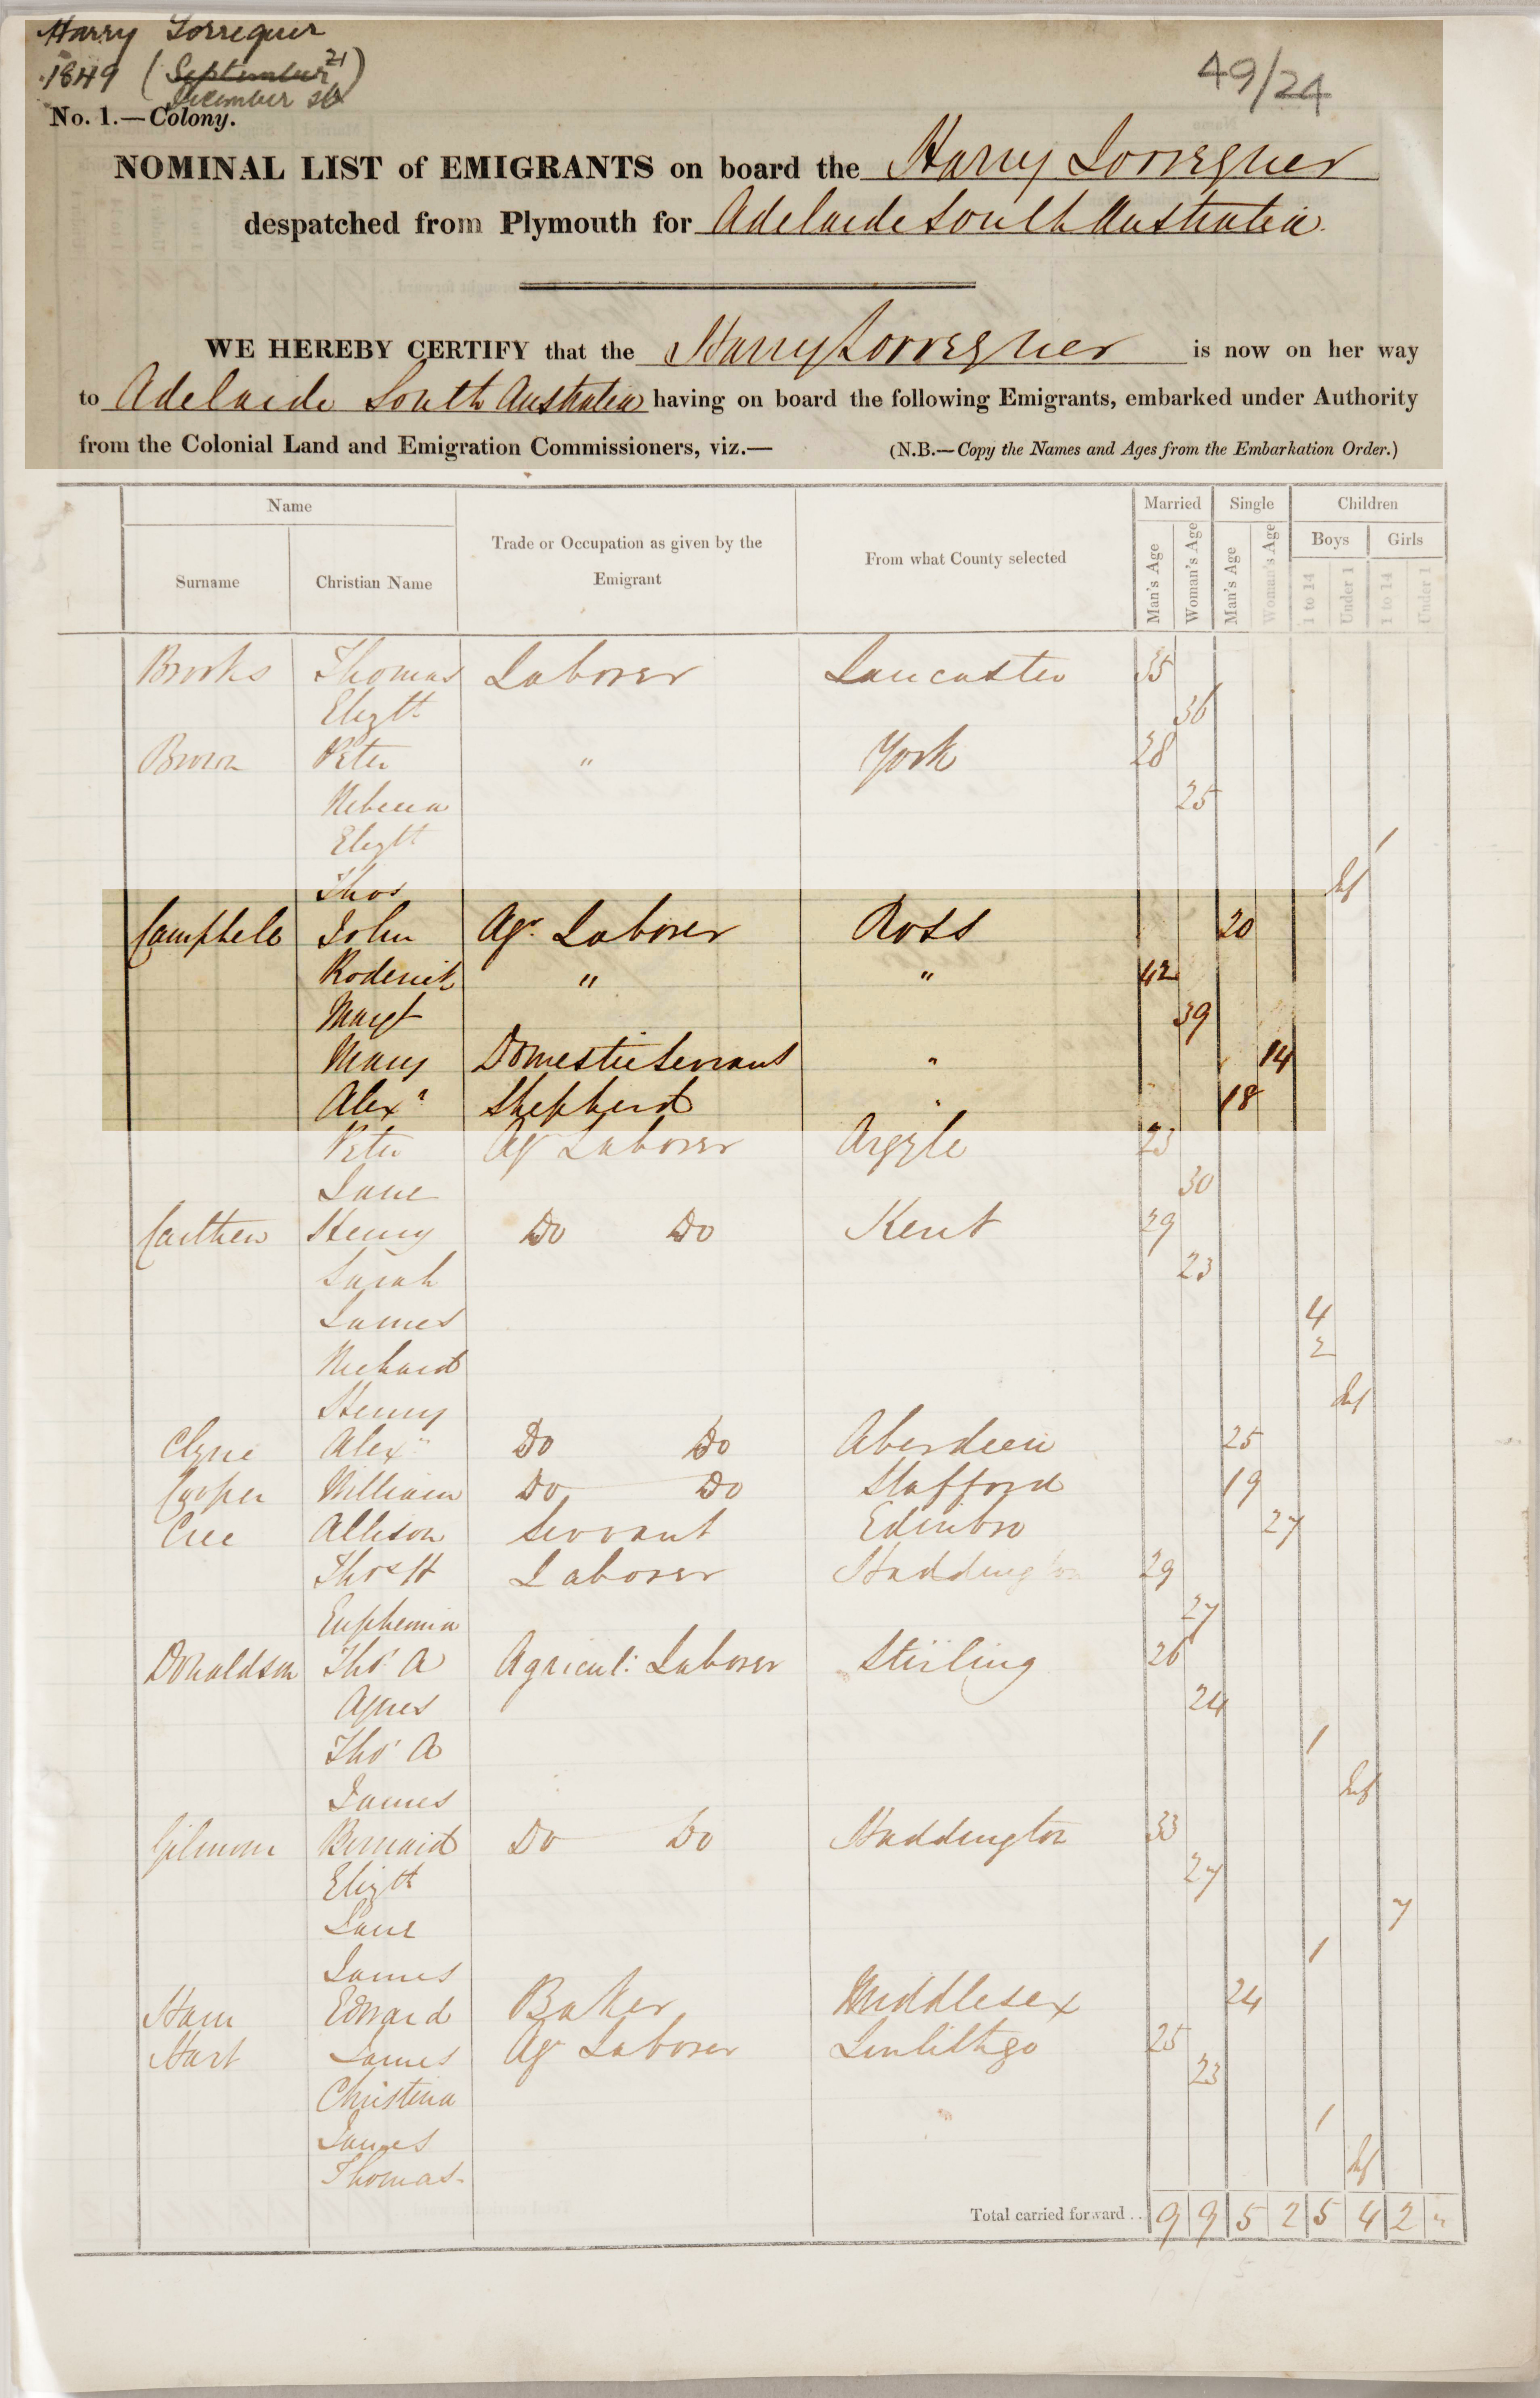 Harry Lorrequer
1849 (September 21)
December st
49/24
No. 1.—Colony.
NOMINAL LIST of EMIGRANTS on board the Harry Lorrequer
despatched from Plymouth for Adelaide South Australia.
WE HEREBY CERTIFY that the Harry Lorrequer is now on her way
to Adelaide South Australia having on board the following Emigrants, embarked under Authority
from the Colonial Land and Emigration Commissioners, viz.— (N.B.—Copy the Names and Ages from the Embarkation Order.)
Name Trade or Occupation as given by the Emigrant From what County selected Married Single Children
Surname Christian Name Man's Age Woman's Age Man's Age Woman's Age Boys Girls
1 to 14 Under 1 1 to 14 Under 1
Brooks Thomas Laborer Lancaster 35
Elizth 36
Brown Peter " York 28
Rebecca 25
Elizth 1
Thos Inf
Campbele John Agr. Laborer Ross 20
Roderick " " 42
Margt 39
Mary Domestic Servant " 14
Alexr Shepherd " 18
Peter Agr Laborer Argyle 23
Jane 30
Carthew Henry Do Do Kent 29
Sarah 23
James 4
Richard 2
Henry Inf
Clyne Alexr Do Do Aberdeen 25
Cooper William Do Do Stafford 19
Cree Allison Servant Edinbro 27
Thos H Laborer Haddington 29
Euphemia 27
Donaldson Thos A Agricul: Laborer Stirling 26
Agnes 24
Thos A 1
James Inf
Gilmour Bernard Do Do Haddington 33
Elizth 27
Jane 7
James 1
Ham Edward Baker Middlesex 24
Hart James Agr Laborer Linlithgo 25
Christina 23
James 1
Thomas Inf
Total carried forward .. 9 9 5 2 5 4 2 "